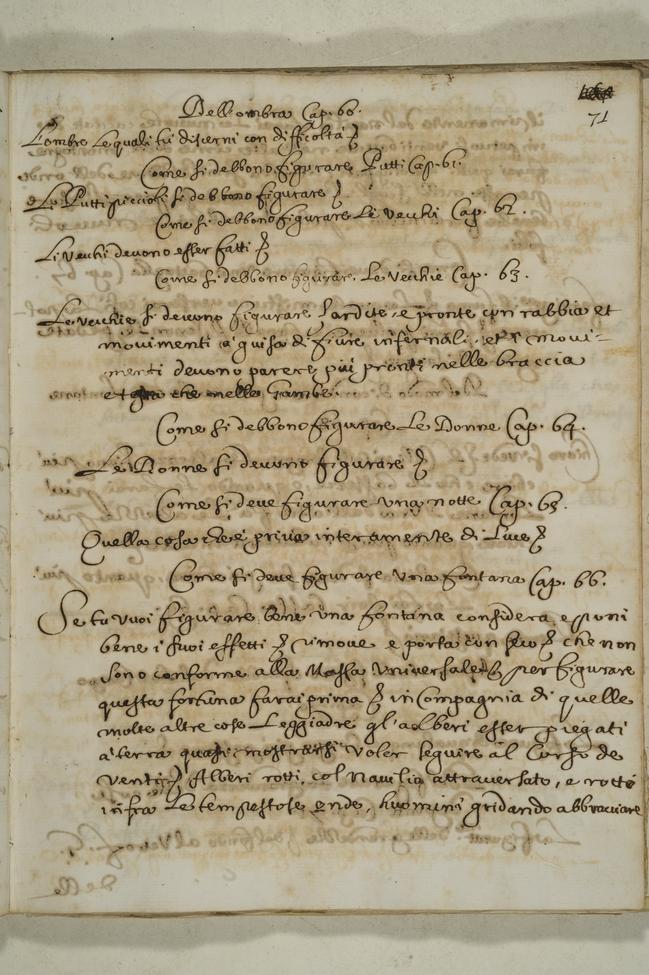 71
Dell ombra Cap. 60.
L'ombre le quali tu discerni con difficoltà
Come si debbono figurare Putti Cap. 61.
Li Putti piccioli si debbono figurare
Come si debbono figurare Li Vecchi Cap. 62.
Li Vecchi devono esser fatti
Come si debbono figurare Le Vecchie Cap. 63.
Le vecchie si devono figurare l'ardite, e pronte con rabbia et
movimenti à guisa di furie infernali, et i movi-
menti devono parere più pronti nelle braccia
et che nelle Gambe.
Come si debbono figurare Le Donne Cap. 64.
Le Donne si devono figurare
Come si deve figurare una notte Cap. 65.
Quella cosa che è priva interamente di Luce
Come si deve figurare una fontana Cap. 66.
Se tu vuoi figurare bene una fontana considera, e poni
bene i suoi effetti rimove e porta con seco che non
sono conforme alla Massa Universale per figurare
questa fortuna farai prima in Compagnia di quelle
molte altre cose Leggiadre gl'alberi esser piegati
a terra quasi mostrarsi voler seguire il Corso de
venti Alberi rotti, col Navilio attraversato, e rotto
infra Le tempestose onde, huomini gridando abbracciare